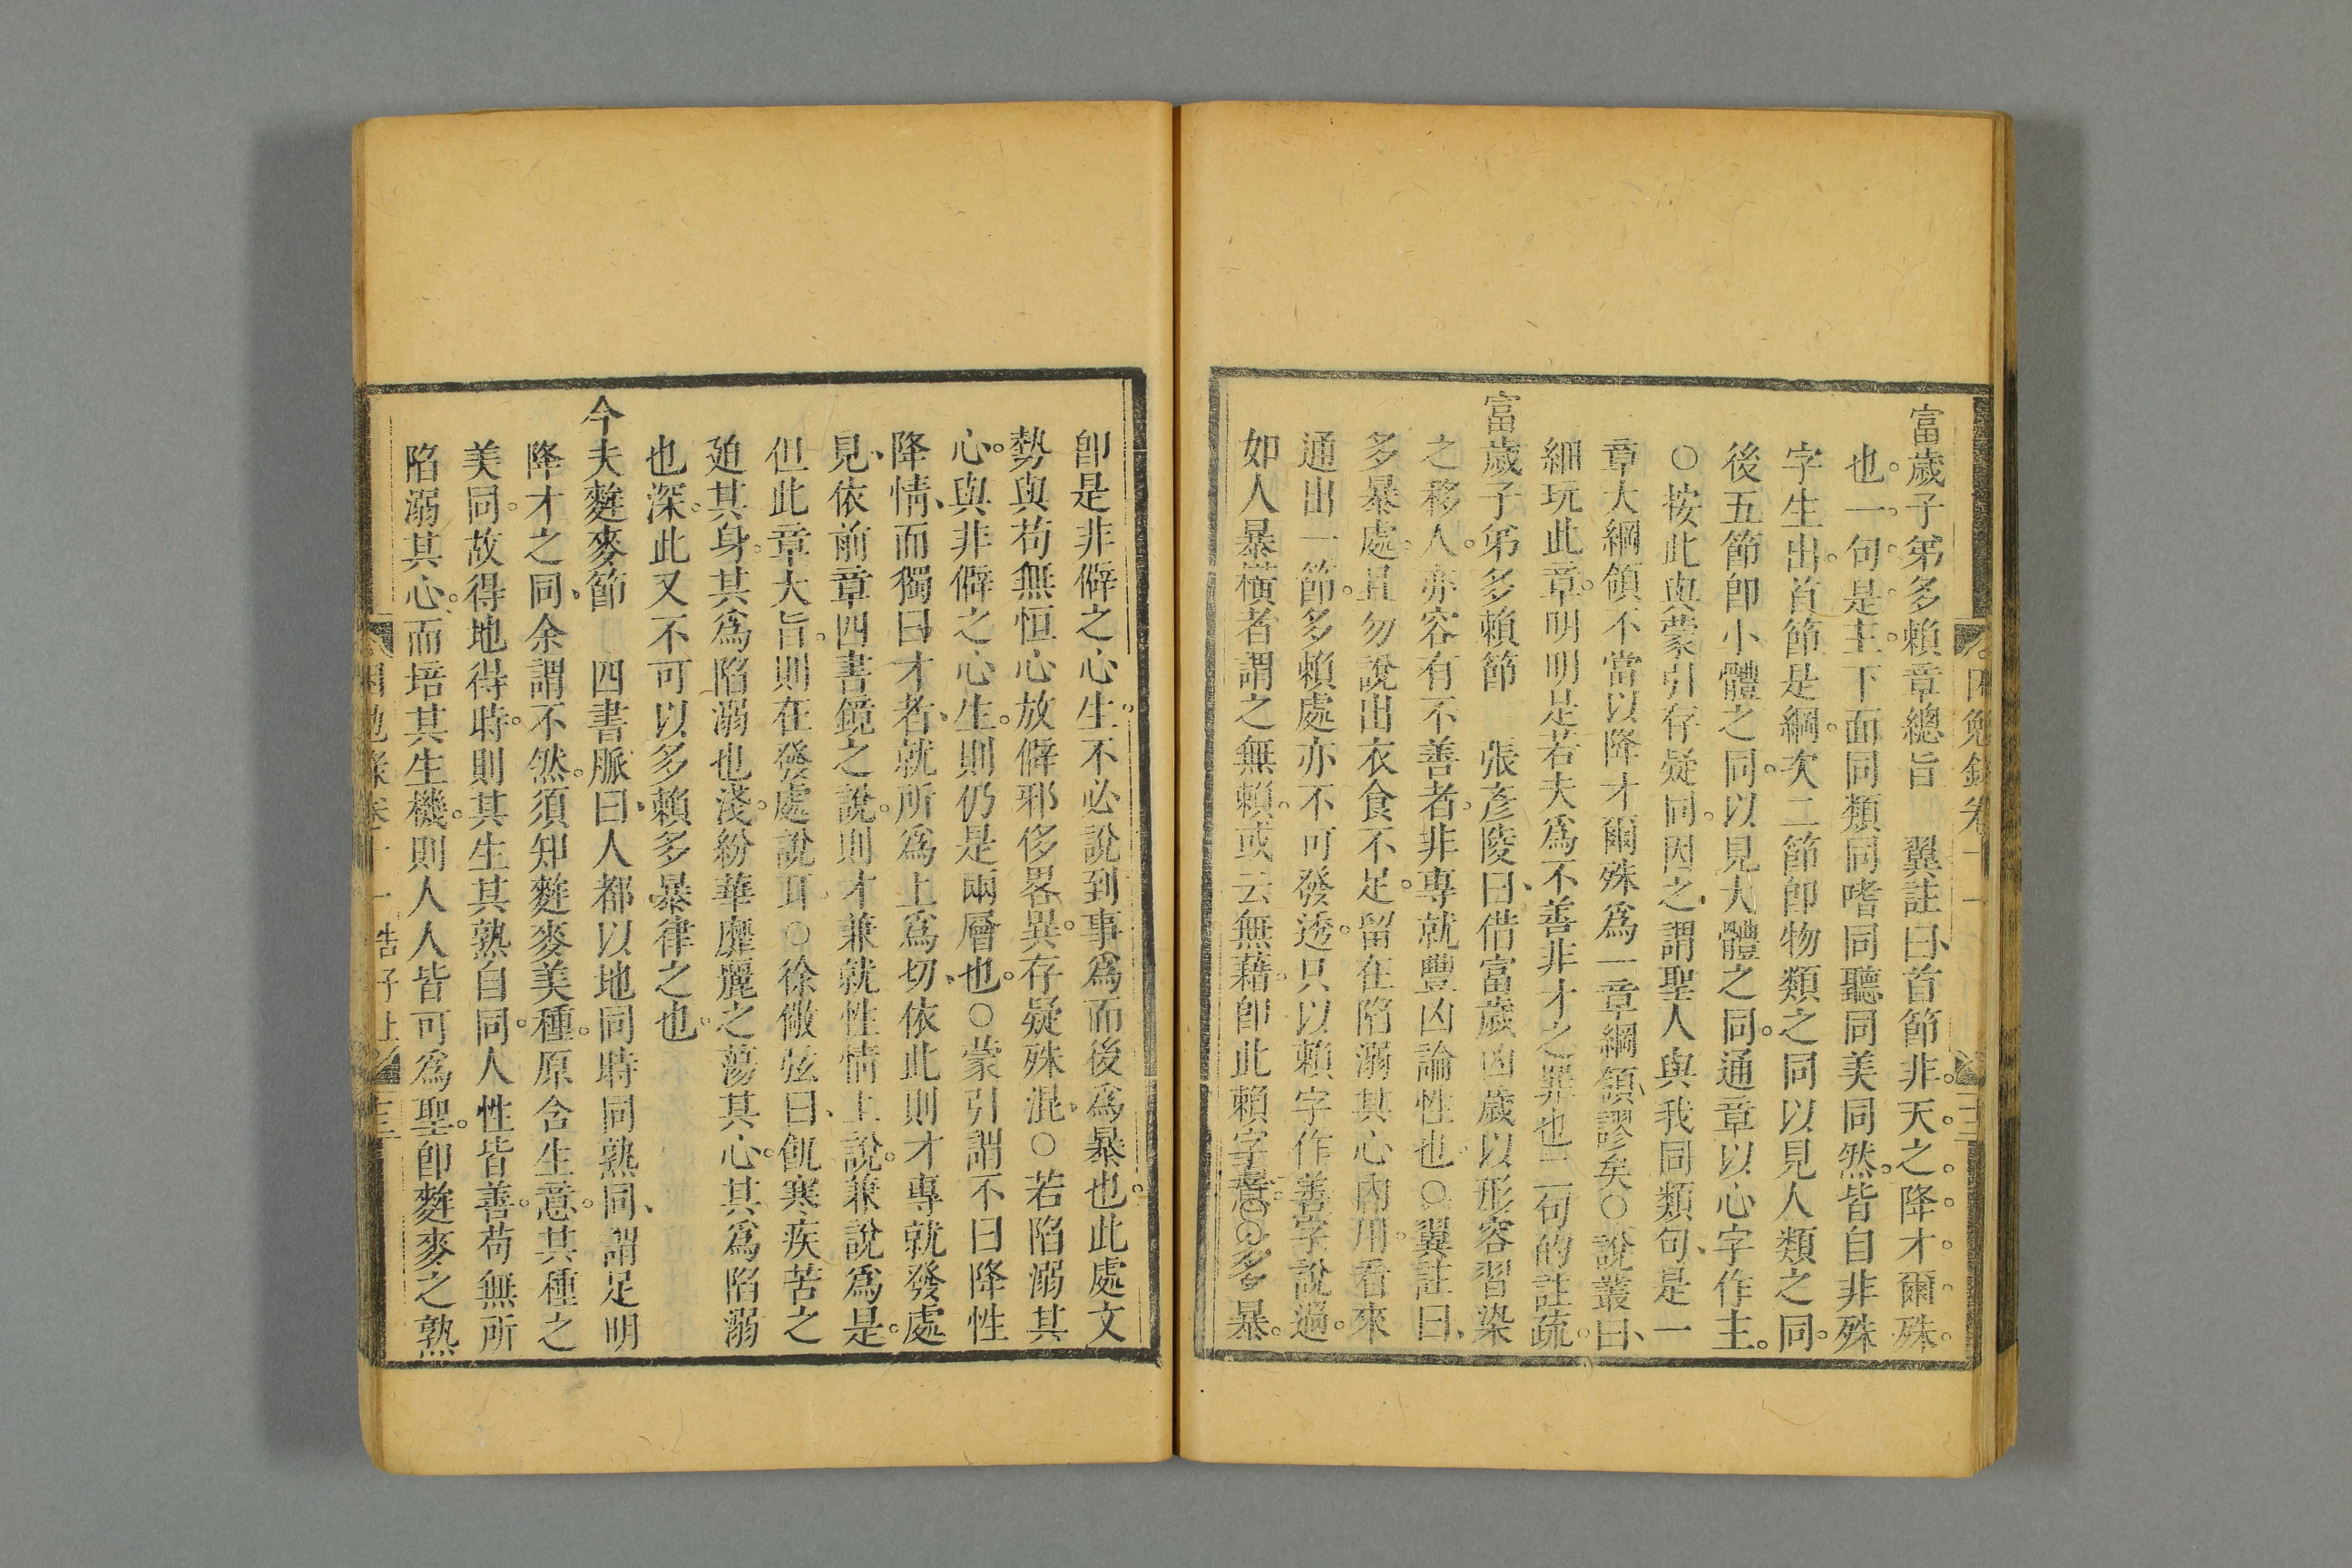 富歲子弟多賴章總旨　翼註曰、首節非天之降才爾殊
也。一句是主。下面同類同嗜同聽同美同然。皆自非殊
字生出。首節是綱。次二節卽物類之同以見人類之同。
後五節卽小體之同。以見大體之同。通章以心字作主。
○按此與蒙引存疑同。因之、謂聖人與我同類句、是一
章大綱領不當以降才爾殊爲一章綱領、謬矣○說叢曰、
細玩此章。明明是若夫爲不善非才之罪也二句的註疏。
富歲子弟多賴節　張彥陵曰、借富歲凶歲以形容習染
之移人。亦容有不善者。非專就豐凶論性也。○翼註曰、
多暴處。且勿說出衣食不足。留在陷溺其心內用。看來
通出一節。多賴處亦不可發透。只以賴字作善字說過。
如人暴橫者謂之無賴。或云無藉。卽此賴字意。○多暴。
卽是非僻之心生。不必說到事爲而後爲暴也。此處文
勢與苟無恒心放僻邪侈畧異。存疑殊混。○若陷溺其
心。與非僻之心生。則仍是兩層也。○蒙引謂不曰降性
降情、而獨曰才者、就所爲上爲切、依此則才專就發處
見、依前章四書鏡之說。則才兼就性情上說。兼說爲是。
但此章大旨。則在發處說耳。○徐儆弦曰、飢寒疾苦之
廹其身。其爲陷溺也淺。紛華靡麗之蕩其心。其爲陷溺
也深。此又不可以多賴多暴律之也。
今夫麰麥節　四書脈曰、人都以地同時同熟同、謂足明
降才之同、余謂不然。須知麰麥美種。原含生意。其種之
美同。故得地得時。則其生其熟自同。人性皆善。苟無所
陷溺其心。而培其生機。則人人皆可爲聖。卽麰麥之熟